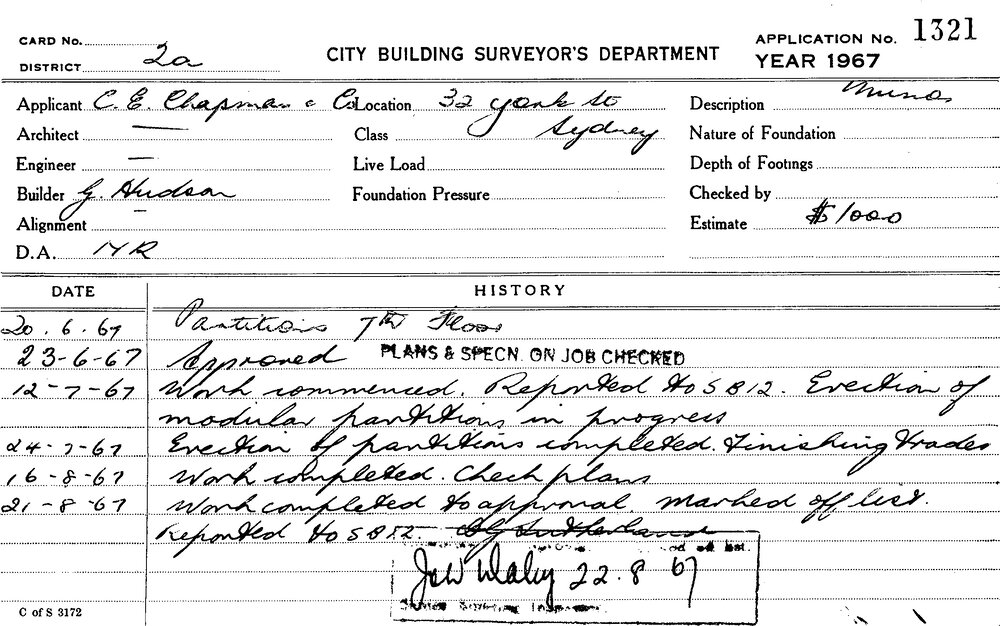 CARD No.
DISTRICT 2a
CITY BUILDING SURVEYOR'S DEPARTMENT
APPLICATION No. 1321
YEAR 1967
Applicant C. E. Chapman & Co Location 32 York St Description Minor
Architect — Class Sydney Nature of Foundation
Engineer — Live Load Depth of Footings
Builder G. Hudson Foundation Pressure Checked by
Alignment — Estimate $1000
D.A. NR
DATE HISTORY
20.6.67 Partitions 7th Floor
23-6-67 Approved PLANS & SPECN. ON JOB CHECKED
12-7-67 Work commenced. Reported to SB12. Erection of
modular partitions in progress
24-7-67 Erection of partitions completed. Finishing trades
16-8-67 Work completed. Check plans
21-8-67 Work completed to approval. Marked off list.
Reported to SB12.
off list.
22.8.67
C of S 3172